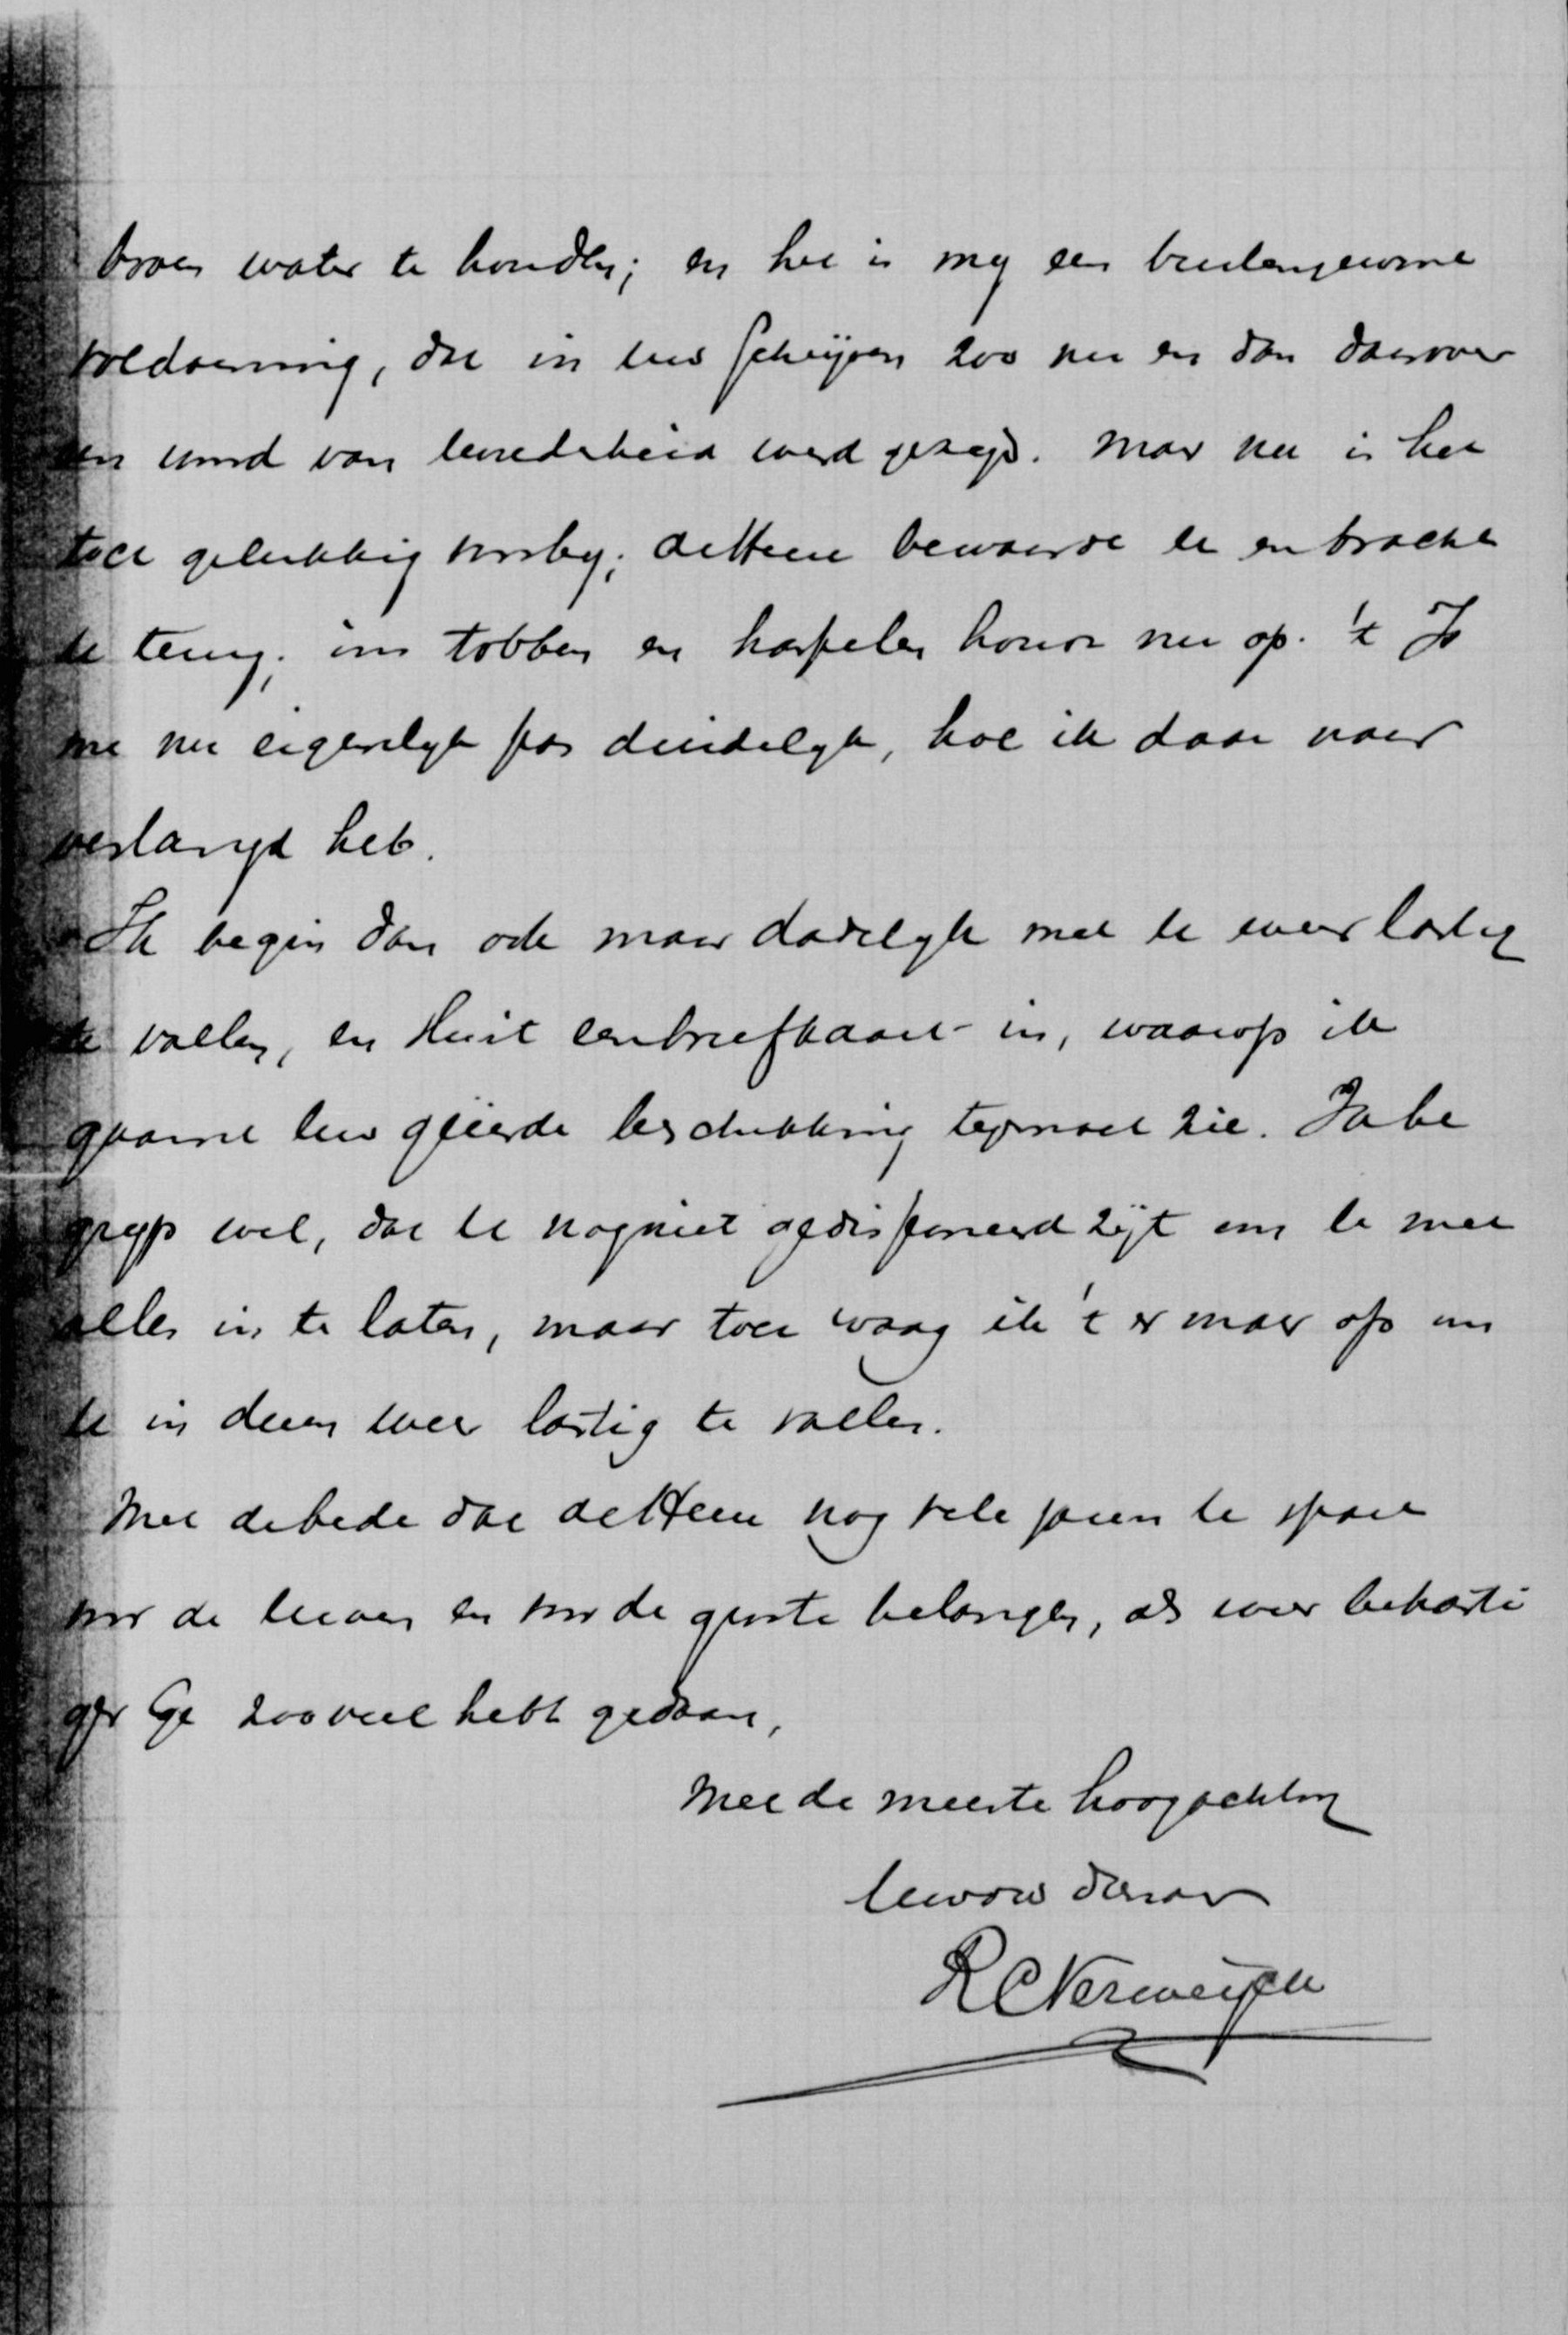 boven water te houden; en het is my een buitengewone
voldoening, dat in Uw schrijven zoo nu en dan daarover
een woord van tevredenheid werd gezegd. Maar nu is het
toch gelukkig voorby; de Heere bewaarde U en bracht
U terug; ons tobben en haspelen houdt nu op. 't Is
me nu eigenlyk pas duidelyk, hoe ik daar naar
verlangd heb.
Ik begin dan ook maar dadelyk met U weer lastig
te vallen, en sluit een briefkaart in, waarop ik
gaarne Uw geëerde beschikking tegemoet zie. Ik be
gryp wel, dat U nog niet gedisponeerd zijt om U met
alles in te laten, maar toch waag ik 't er maar op om
U in dezen weer lastig te vallen.
Met de bede dat de Heere U nog vele jaren te spare
voor de Uwen en voor de groote belangen, als wier beharti
ger Ge zooveel hebt gedaan,
Met de meeste hoogachting
Uw dw dienaar
R C Verweyck